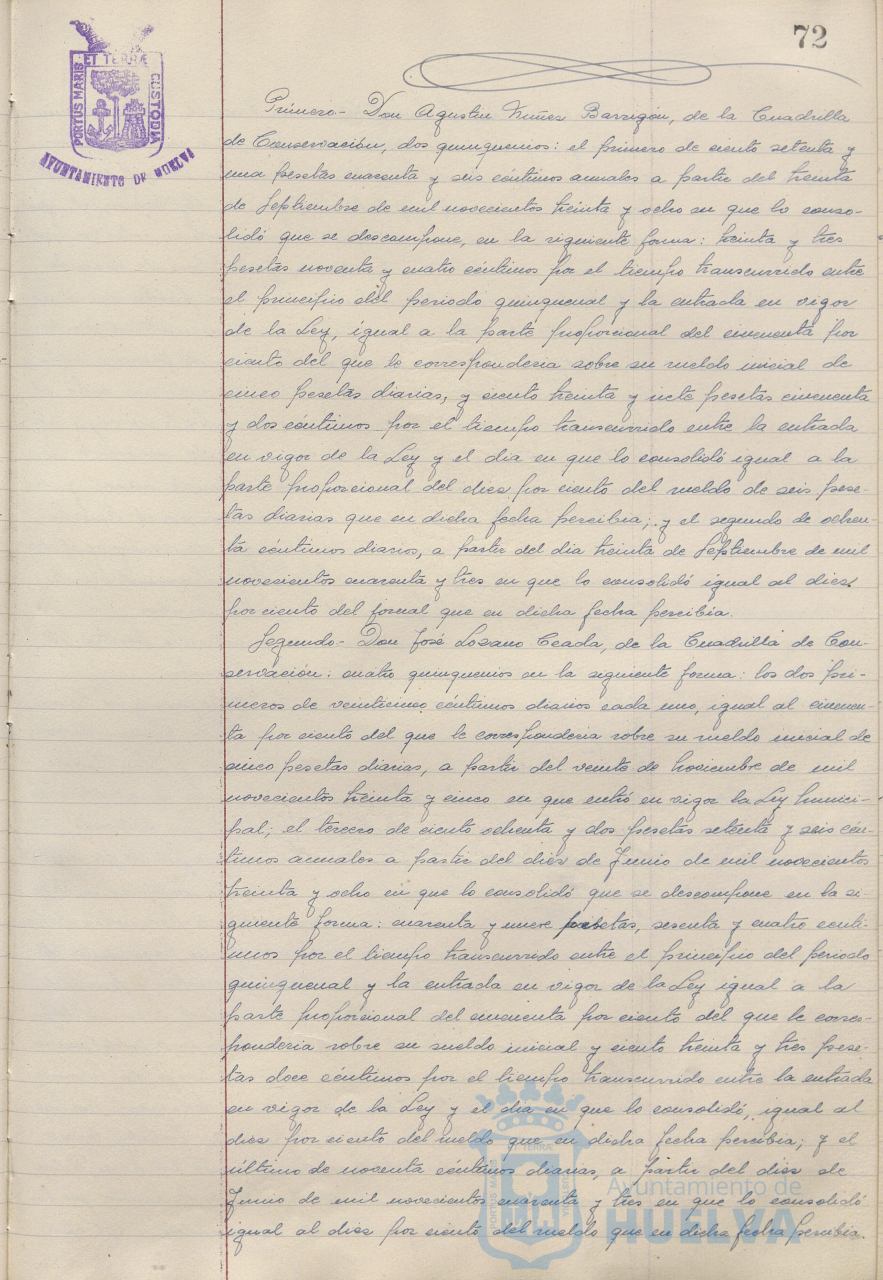 72
PORTUS MARIS ET TERRÆ CUSTODIA
AYUNTAMIENTO DE HUELVA
Primero- Don Agustín Núñez Barrigón, de la Cuadrilla
de Conservación, dos quinquenios: el primero de ciento setenta y
una pesetas cuarenta y seis céntimos anuales a partir del treinta
de Septiembre de mil novecientos treinta y ocho en que lo conso-
lidó que se descompone, en la siguiente forma: treinta y tres
pesetas noventa y cuatro céntimos por el tiempo transcurrido entre
el principio del periodo quinquenal y la entrada en vigor
de la Ley, igual a la parte proporcional del cincuenta por
ciento del que le correspondería sobre su sueldo inicial de
cinco pesetas diarias, y ciento treinta y siete pesetas cincuenta
y dos céntimos por el tiempo transcurrido entre la entrada
en vigor de la Ley y el dia en que lo consolidó igual a la
parte proporcional del diez por ciento del sueldo de seis pese-
tas diarias que en dicha fecha percibia; y el segundo de ochen-
ta céntimos diarios, a partir del dia treinta de Septiembre de mil
novecientos cuarenta y tres en que lo consolidó igual al diez
por ciento del jornal que en dicha fecha percibia.
Segundo- Don José Lozano Ceada, de la Cuadrilla de Con-
servación: cuatro quinquenios en la siguiente forma: los dos pri-
meros de veinticinco céntimos diarios cada uno, igual al cincuen-
ta por ciento del que le correspondería sobre su sueldo inicial de
cinco pesetas diarias, a partir del veinte de Noviembre de mil
novecientos treinta y cinco en que entró en vigor la Ley Munici-
pal; el tercero de ciento ochenta y dos pesetas setenta y seis cén-
timos anuales a partir del diez de Junio de mil novecientos
treinta y ocho en que lo consolidó que se descompone en la si-
guiente forma: cuarenta y nueve pesetas, sesenta y cuatro cénti-
mos por el tiempo transcurrido entre el principio del periodo
quinquenal y la entrada en vigor de la Ley igual a la
parte proporcional del cincuenta por ciento del que le corres-
pondería sobre su sueldo inicial y ciento treinta y tres pese-
tas doce céntimos por el tiempo transcurrido entre la entrada
en vigor de la Ley y el dia en que lo consolidó, igual al
diez por ciento del sueldo que en dicha fecha percibia; y el
último de noventa céntimos diarias, a partir del diez de
Junio de mil novecientos cuarenta y tres en que lo consolidó
igual al diez por ciento del sueldo que en dicha fecha percibia.
PORTUS MARIS ET TERRÆ CUSTODIA
Ayuntamiento de
HUELVA